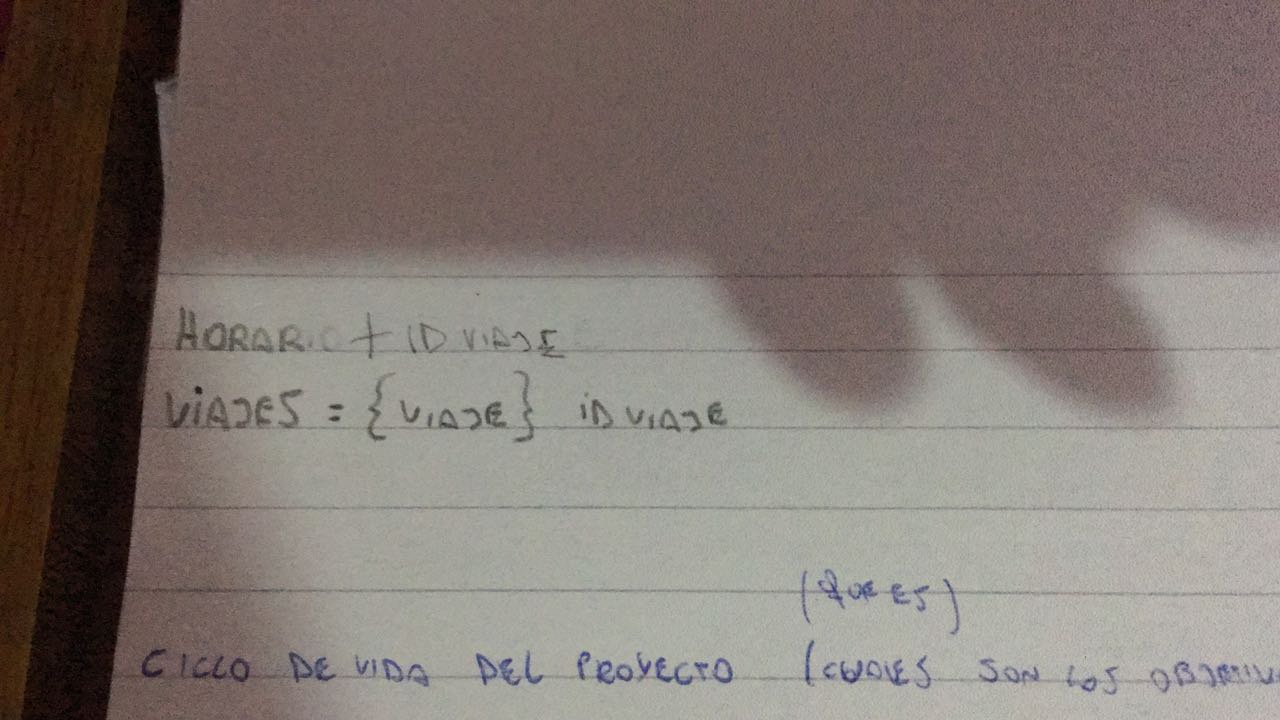 HORARIO + ID VIAJE
VIAJES = {VIAJE} ID VIAJE
(QUE ES)
CICLO DE VIDA DEL PROYECTO (CUALES SON LOS OBJETIV